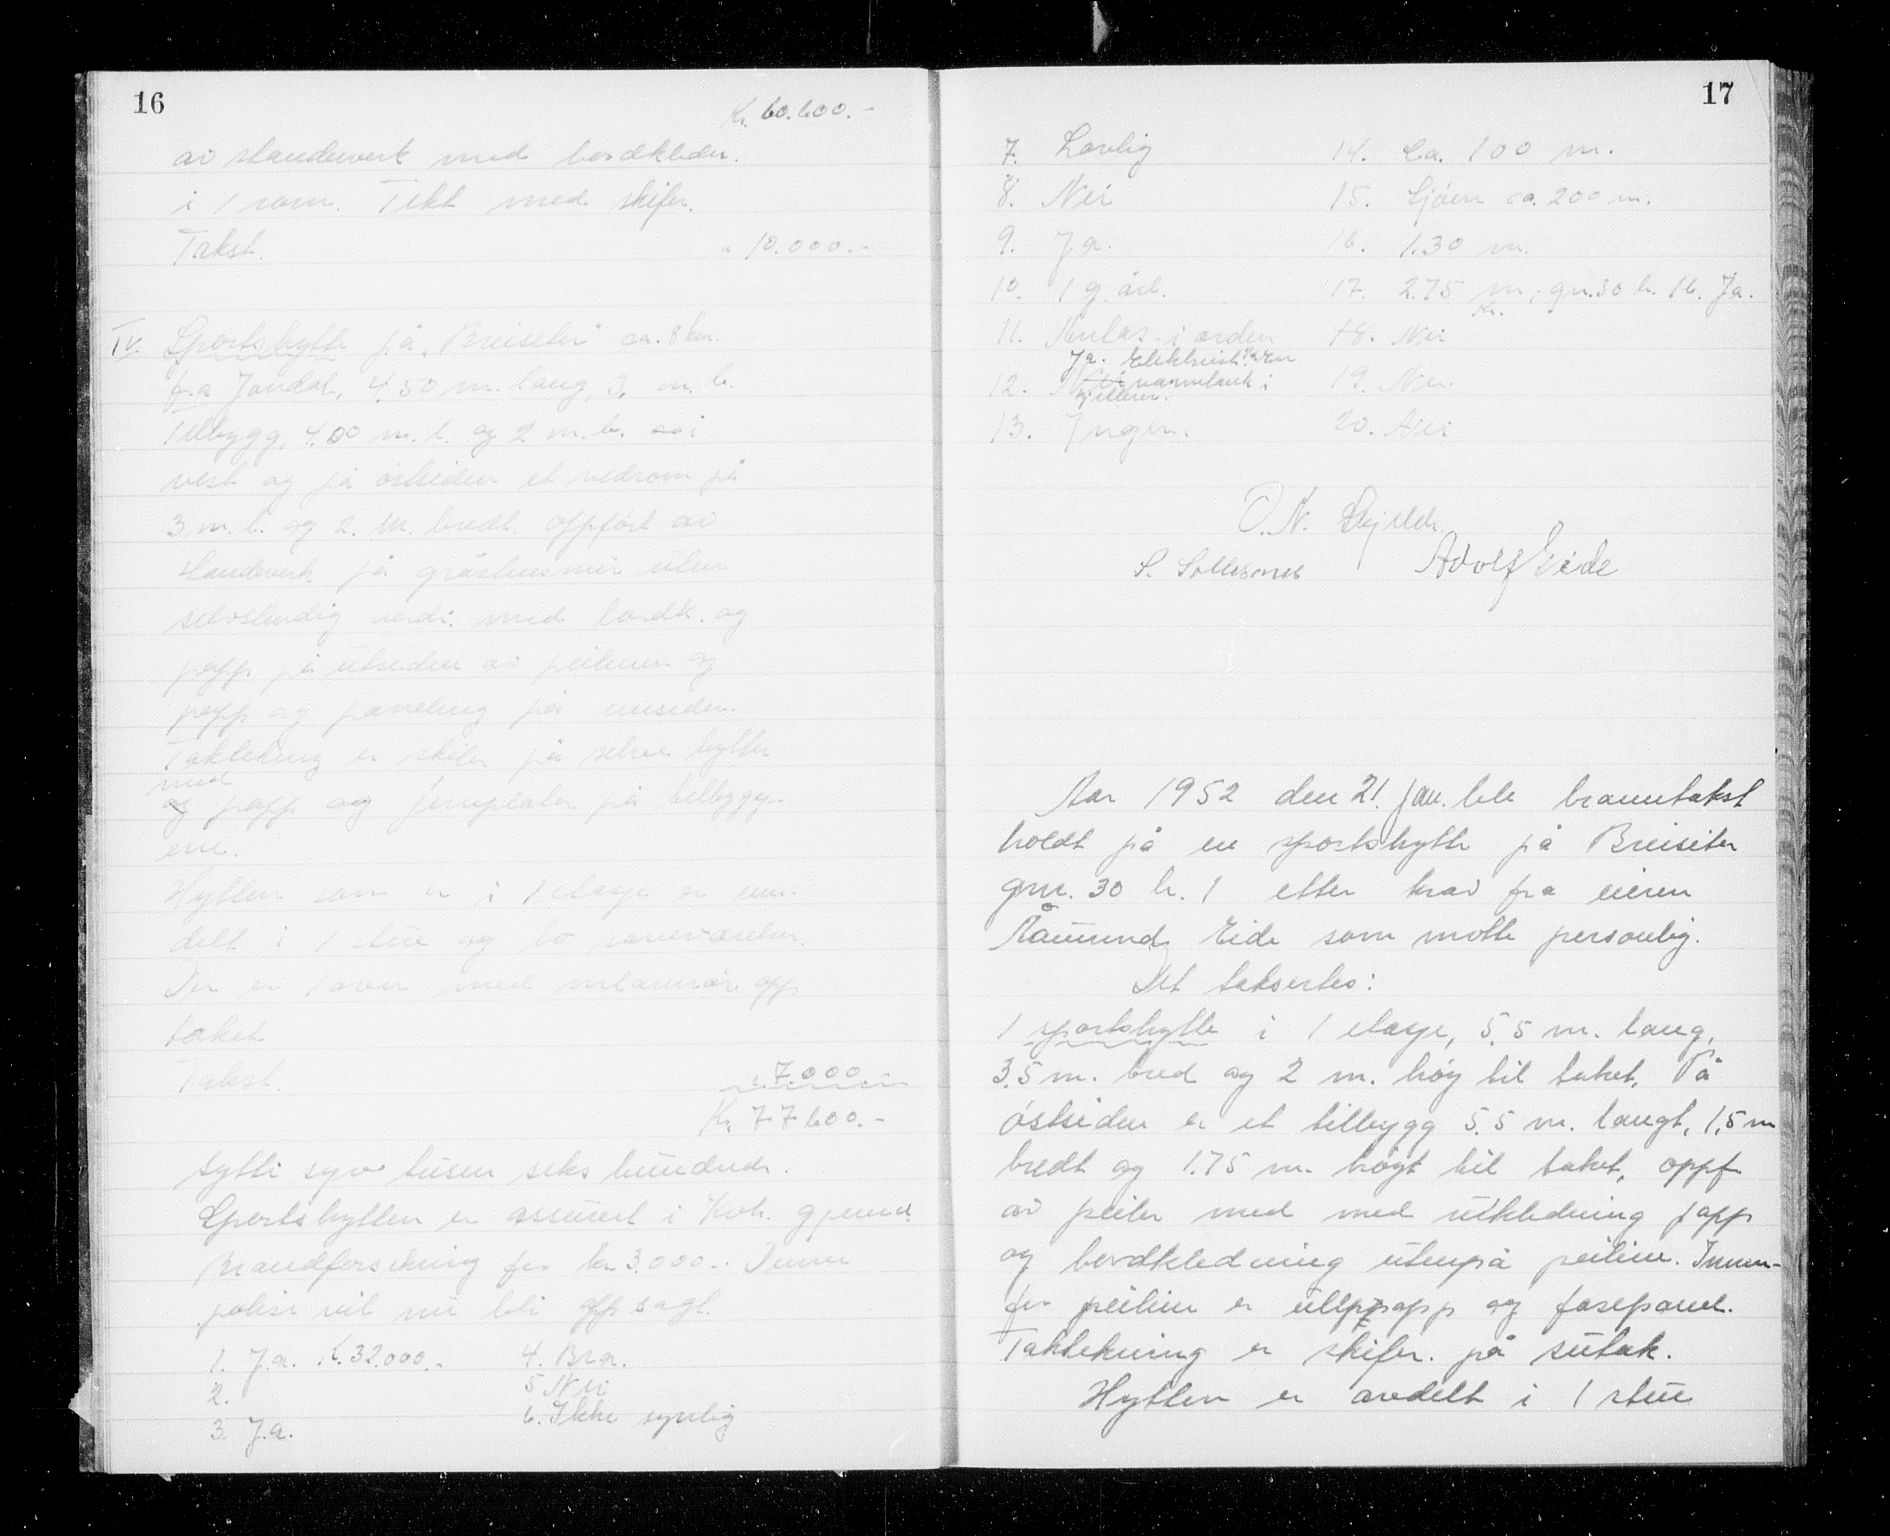 16
Kr. 60.600.-
av standverk med bordkleder.
i 1 rom. Tekt med skifer.
Takst. " 10.000.-
IV. Sportshytte på "Breiseter" ca. 8 km.
fra Jondal, 4,50 m. lang, 3, m. b.
Tilbygg, 4.00 m. l. og 2 m. b. i
vest og på østsiden et vedrom på
3 m. l. og 2. m. bredt oppført av
standverk på gråstensmur uten
selvstendig verdi. med bordk. og
papp på utsiden av peilene og
papp og paneling på innsiden.
Taktekning er skifer på selve hytten
med
og papp og jernplater på tilbygg-
ene.
Hytten som er i 1 etasje er inn-
delt i 1 stue og to soveværelser
Der er 1 ovn med rør opp
taket
Takst. " 7.000
Kr. 77.600.-
sytti syv tusen seks hundrede.
Sportshytten er assurert i Kvh. gjensid.
Brandforsikring for kr 3.000.- Denne
polise vil nu bli opp sagt.
1. Ja. K. 32.000.- 4. Bra.
2. 5 Nei
3. Ja. 6. Ikke synlig
17
7. Lovlig 14. Ca. 100 m.
8. Nei 15. Sjøen ca. 200 m.
9. Ja. 16. 1.30 m.
10. 1 g. årl. 17. 2.75 m, gn. 30 b. 16. Ja.
Kr.
11. i orden 18. Nei
Ja. Elektrisk
12. Nei varmtank i 19. Nei.
kjelleren.
13. Ingen. 20. Nei
O. N. Skjelde.
S. Sollesnes Adolf Eide
Aar 1952 den 21. jan. ble branntakst
holdt på en sportshytte på Breiseter
gnr. 30 b. 1 etter krav fra eieren
Åamund Eide som møtte personlig.
Det takseres:
1 sportshytte i 1 etasje, 5.5 m. lang,
3.5 m. bred og 2 m. høy til taket. På
østsiden er et tilbygg 5.5 m. langt, 1,5 m
bredt og 1.75 m. høgt til taket, oppf
av peiler med med utkledning papp
og bordkledning utenpå peiline. Innen-
for peiline er ullpapp og fasepanel.
Taktekning er skifer. på sutak.
Hytten er avdelt i 1 stue